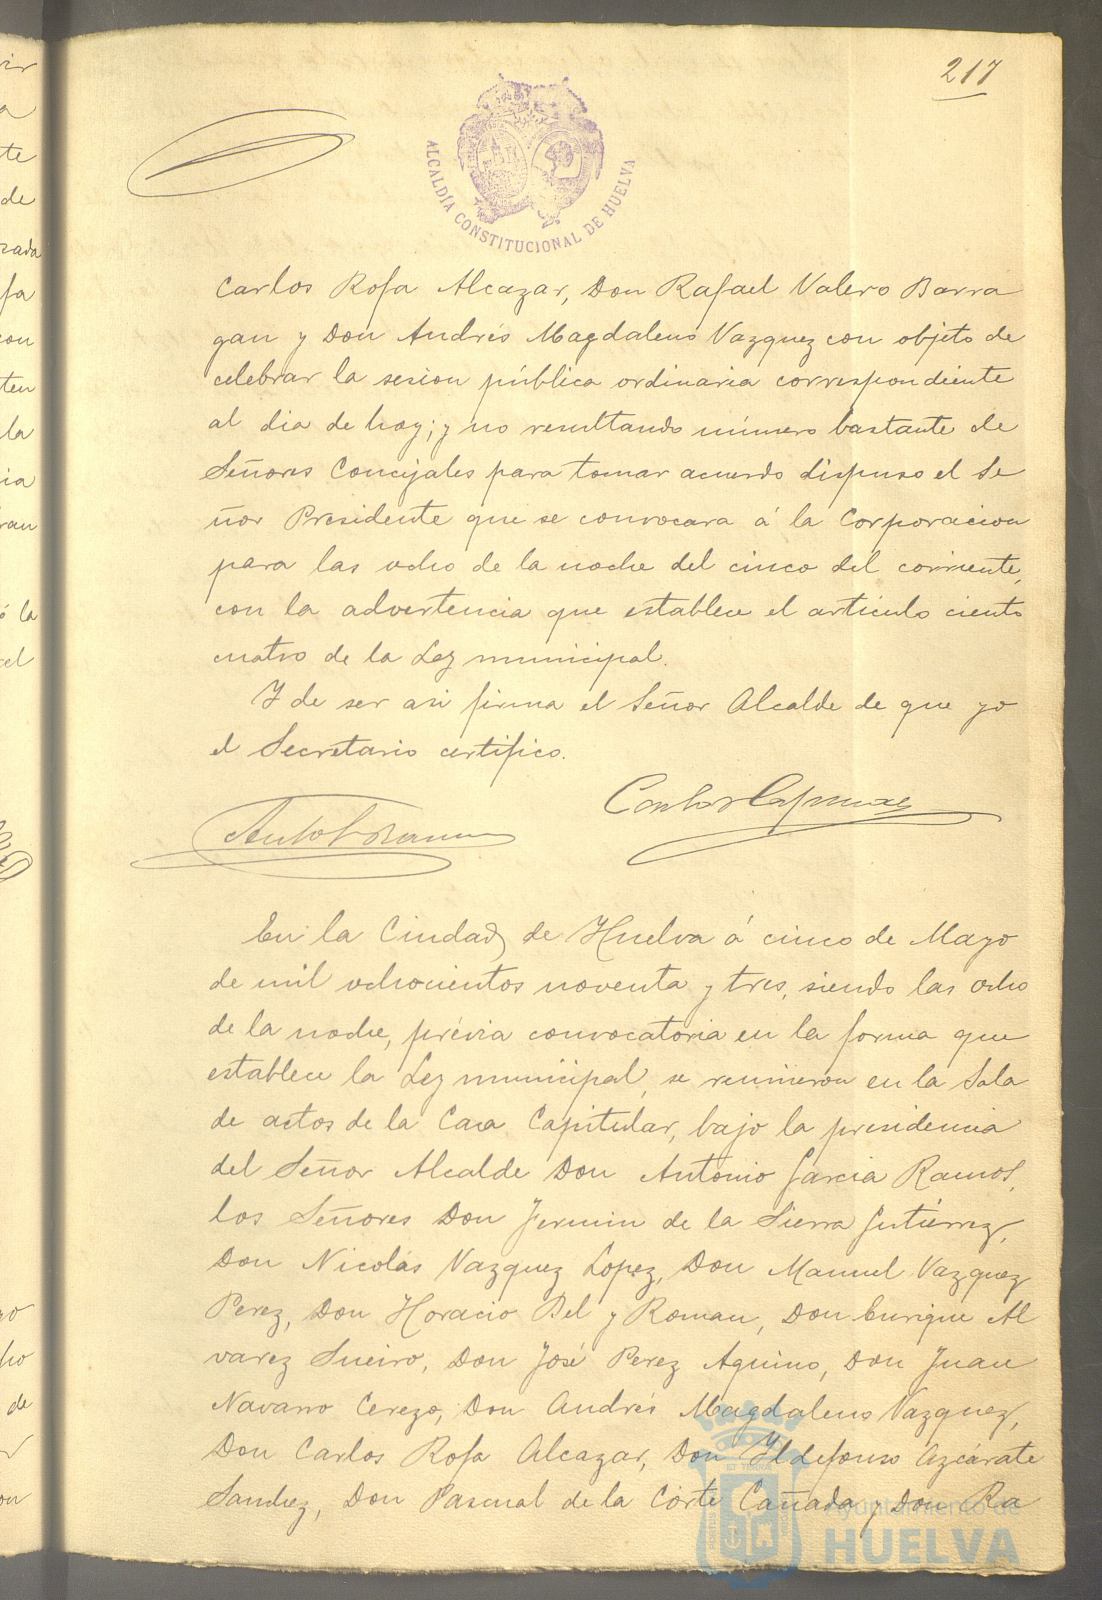 217
ALCALDÍA CONSTITUCIONAL DE HUELVA
Carlos Rofa Alcazar, Don Rafael Valero Barra
gan y Don Andrés Magdaleno Vazquez con objeto de
celebrar la sesion pública ordinaria correspondiente
al dia de hoy; y no resultando número bastante de
Señores Concejales para tomar acuerdo dispuso el Se
ñor Presidente que se convocara á la Corporacion
para las ocho de la noche del cinco del corriente,
con la advertencia que establece el artículo ciento
cuatro de la Ley municipal.
Y de ser asi firma el Señor Alcalde de que yo
el Secretario certifico.
En la Ciudad de Huelva á cinco de Mayo
de mil ochocientos noventa y tres, siendo las ocho
de la noche, prévia convocatoria en la forma que
establece la Ley municipal, se reunieron en la Sala
de actos de la Casa Capitular, bajo la presidencia
del Señor Alcalde Don Antonio Garcia Ramos,
los Señores Don Fermin de la Sierra Gutierrez,
Don Nicolás Vazquez Lopez, Don Manuel Vazquez
Perez, Don Horacio Bel y Roman, Don Enrique Al
varez Sueiro, Don José Perez Aquino, Don Juan
Navarro Cerezo, Don Andrés Magdaleno Vazquez,
Don Carlos Rofa Alcazar, Don Ildefonso Azcárate
Sanchez, Don Pascual de la Corte Cañada y Don Ra
Ayuntamiento de
HUELVA